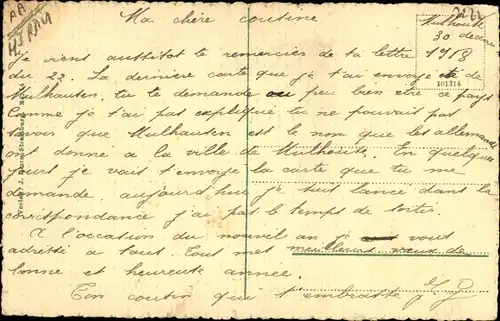 AA
Ma chère cousine
Mulhouse
30 decem
1918
101214
Je viens aussitot te remercier de ta lettre
du 23. La derniere carte que je t'ai envoyé été de
Mulhausen tu te demande ou peu bien etre ce pays
Comme je t'ai pas expliqué tu ne pouvait pas
savoir que Mulhausen est le nom que les allemands
ont donne a la ville de Mulhouse. En quelques
jours je vais t'envoyé la carte que tu me
demande aujourd'hui je suis lancé dans la
correspondance j'ai pas le temps de sortir.
A l'occasion du nouvil an j' vous
adresse a tous. Tout mes meilleurs vœux de
bonne et heureuse annee.
Ton cousin que t'embrasse J. J
Verlag J.